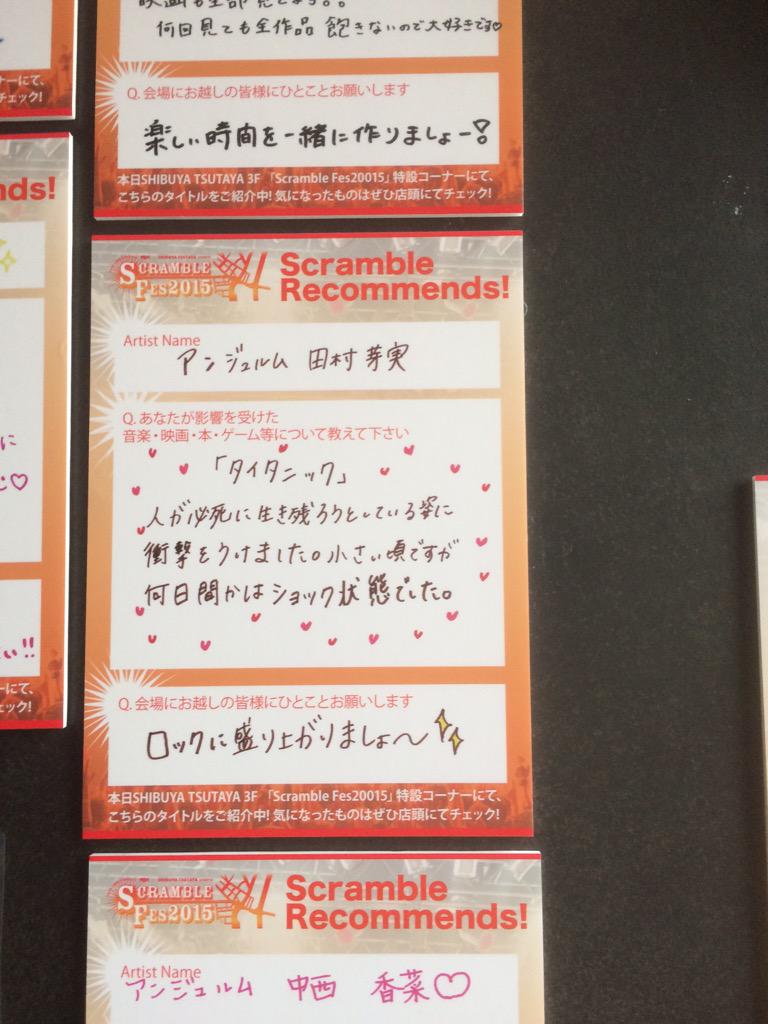 映画も全部見てます。。
何回見ても全作品 飽きないので大好きです♡
Q. 会場にお越しの皆様にひとことお願いします
楽しい時間を一緒に作りましょー!
本日SHIBUYA TSUTAYA 3F 「Scramble Fes20015」特設コーナーにて、
こちらのタイトルをご紹介中! 気になったものはぜひ店頭にてチェック!
ーナーにて、
チェック!
nds!
に
♡
い!!
ーにて、
ック!
SCRAMBLE
FES2015
Scramble
Recommends!
Artist Name
アンジュルム 田村芽実
Q. あなたが影響を受けた
音楽・映画・本・ゲーム等について教えて下さい
「タイタニック」
人が必死に生き残ろうとしている姿に
衝撃をうけました。小さい頃ですが
何日間かはショック状態でした。
Q. 会場にお越しの皆様にひとことお願いします
ロックに盛り上がりましょ〜
本日SHIBUYA TSUTAYA 3F 「Scramble Fes20015」特設コーナーにて、
こちらのタイトルをご紹介中! 気になったものはぜひ店頭にてチェック!
SCRAMBLE
FES2015
Scramble
Recommends!
Artist Name
アンジュルム 中西 香菜♡